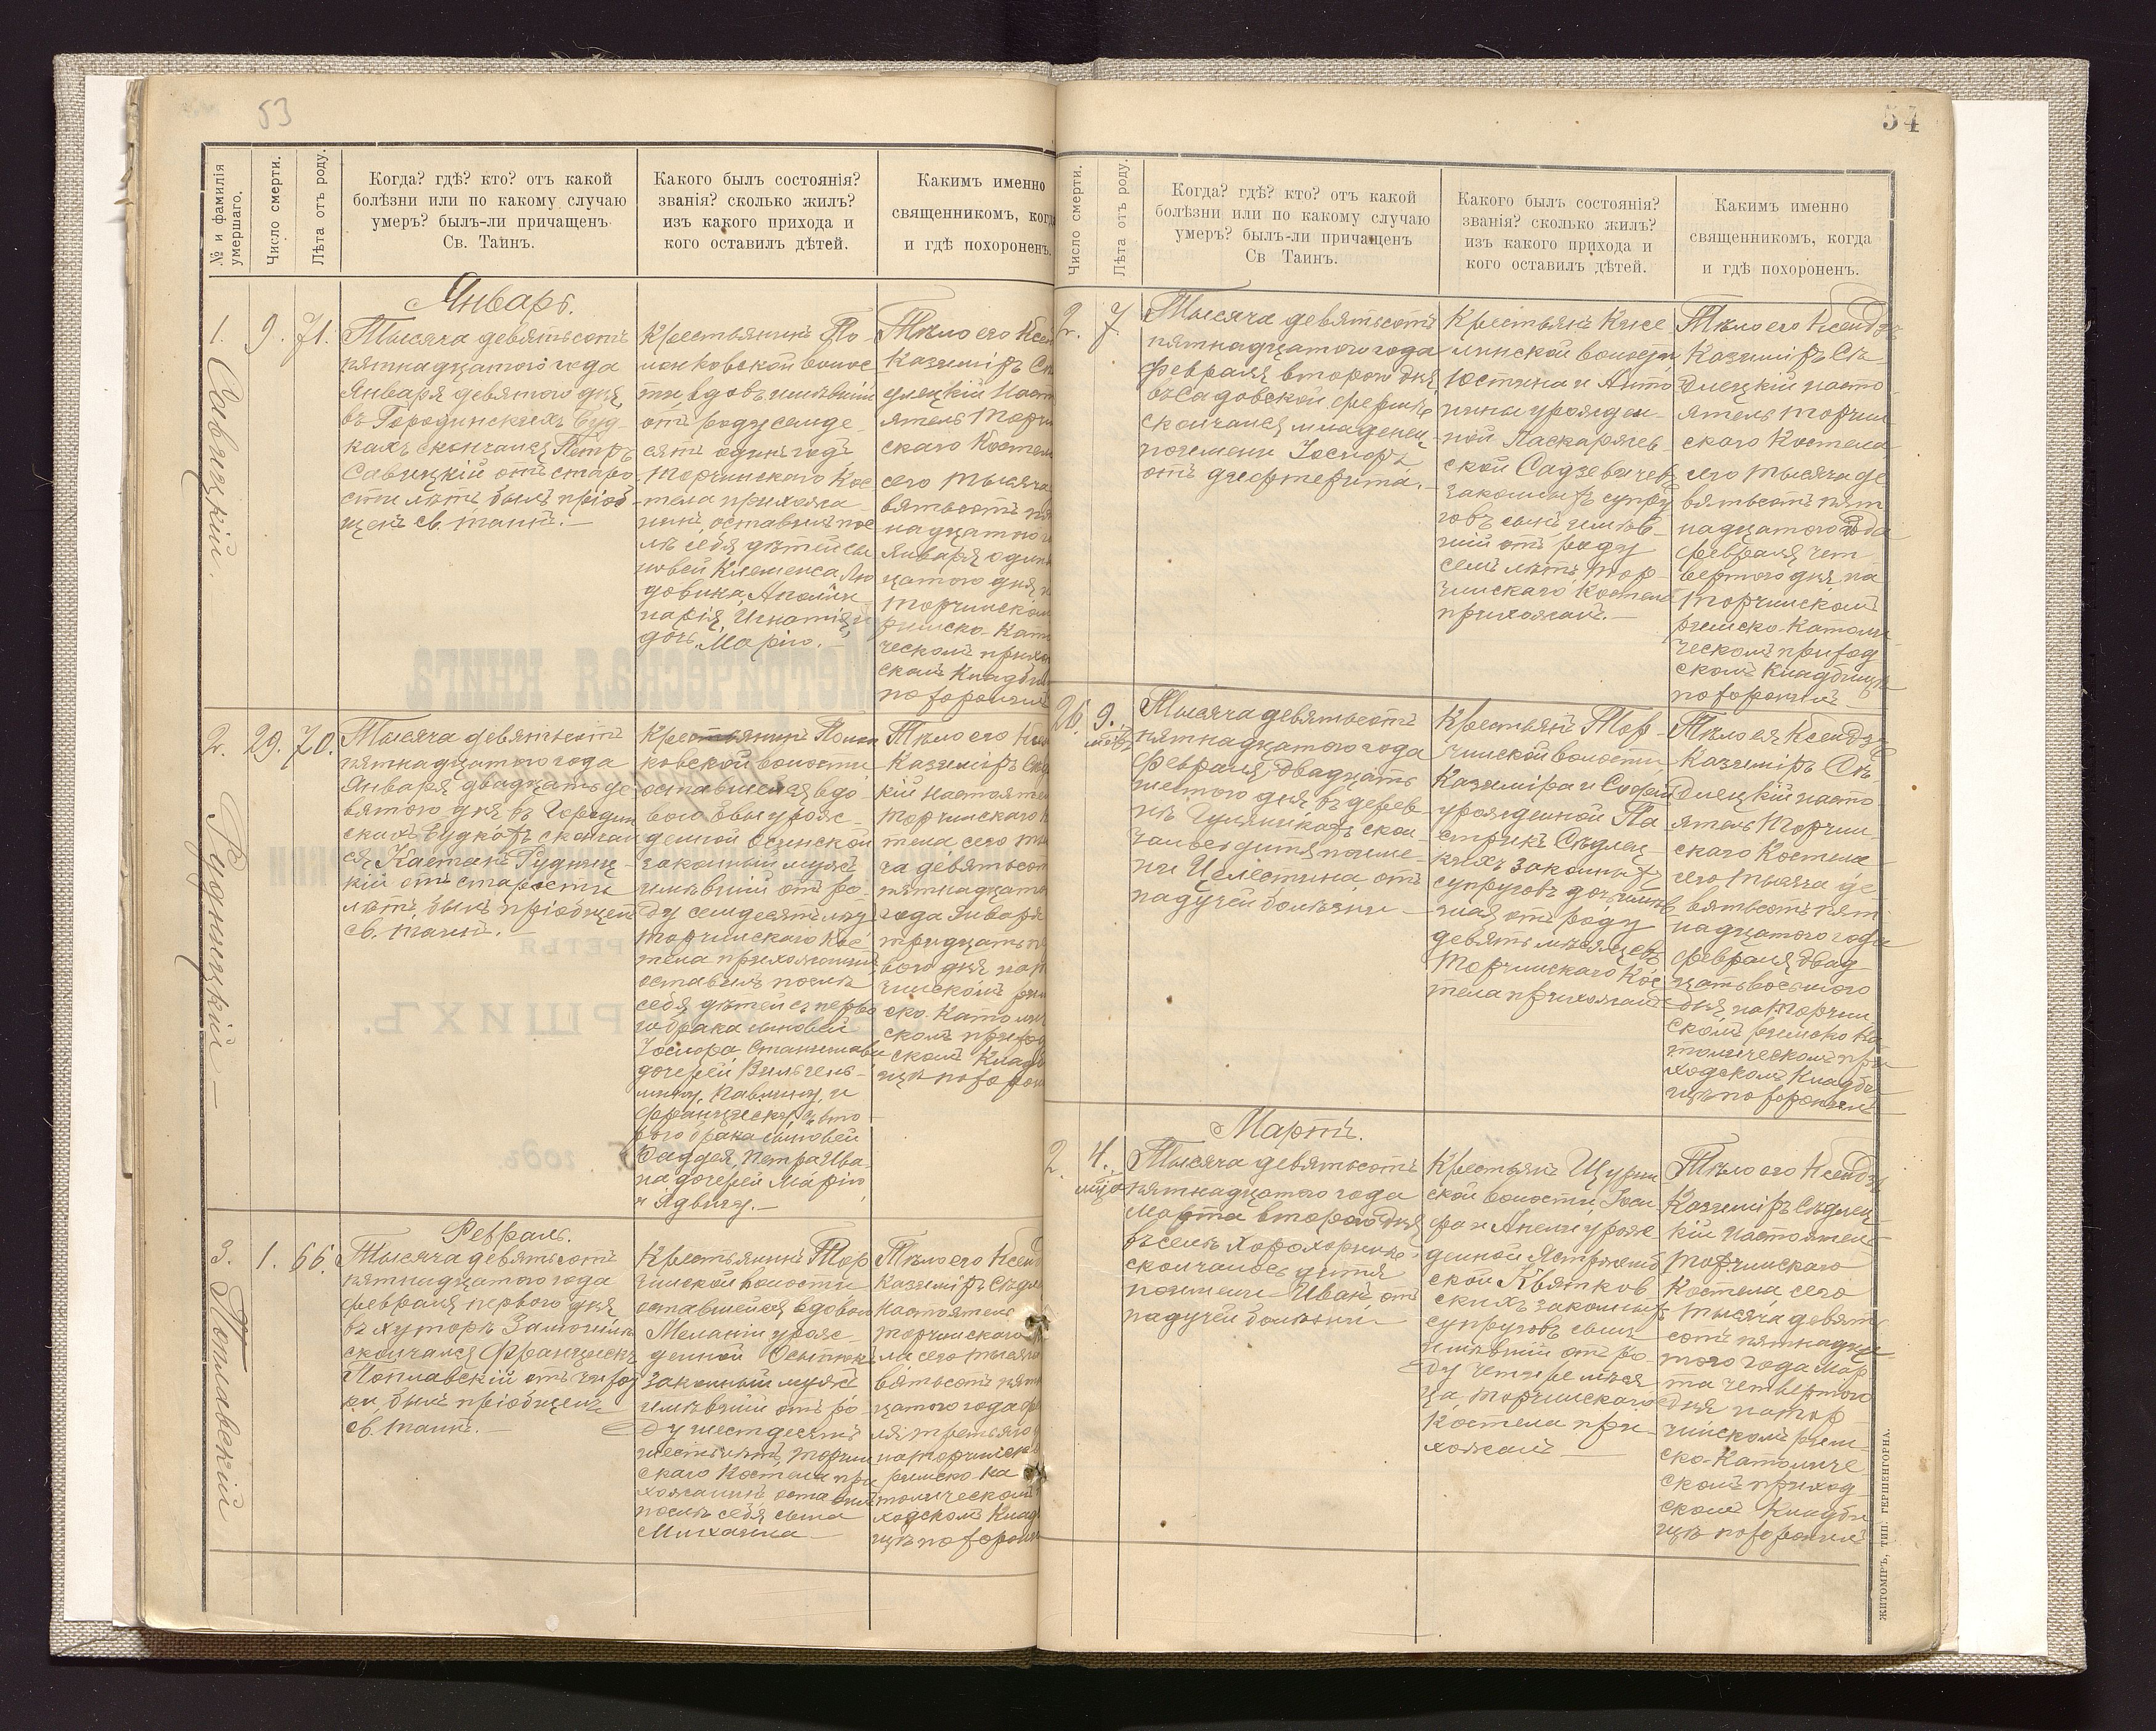 53
№ и фамилія умершаго.
Число смерти.
Лѣта отъ роду.
Когда? гдѣ? кто? отъ какой
болѣзни или по какому случаю
умеръ? былъ-ли причащенъ
Св. Таинъ.
Какого былъ состоянія?
званія? сколько жилъ?
изъ какого прихода и
кого оставилъ дѣтей.
Какимъ именно
священникомъ, когда
и гдѣ похороненъ.
Январь.
1. Савицкій.
9.
71.
Тысяча девятьсотъ
пятнадцатого года
Января девятого дня
въ Городинскихъ Буд-
кахъ скончался Петръ
Савицкій отъ старо
сти лѣтъ, былъ пріоб
щенъ св. таинъ.—
Крестьянинъ По-
лонковской волос
ти вдовъ имѣвшій
отъ роду семьде-
сятъ одинъ годъ
Торчинскаго Кос
тела прихожа-
нинъ, оставилъ пос
лѣ себя дѣтей сы
новей Клеменса, Лю
довика, Аполин
нарія, Игнатія и
дочь Марію.—
Тѣло его Ксен
Казиміръ Сѣ
длецкій Наст
ятель Торчин
скаго Костел
сего тысяча
вятьсотъ пят
надцатого
Января один
цатого дня
Торчинском
римско-Като
ческомъ прихо
скомъ Кладби
похоронилъ
2. Рудницкій—
29.
70.
Тысяча девятьсотъ
пятнадцатого года
Января двадцать де
вятого дня въ Городин
скихъ Будкахъ скончал
ся Каетанъ Рудниц-
кій отъ старости
лѣтъ, былъ пріобщенъ
св. таинъ.—
Крестьянинъ Полон
ковской волости
оставшейся вдо-
вою Евы урож-
денной Осинской
законный мужъ
имѣвшій отъ ро-
ду семдесятъ лѣтъ
Торчинскаго Кос
тела прихожанинъ
оставилъ послѣ
себя дѣтей съ перво
го брака сыновей
Іосифа, Станислава
дочерей Вильгель-
мину, Павлину, и
Францишку, и вто-
рого брака сыновей
Фаддея, Петра, Ива
на дочерей Марію
и Ядвигу.—
Тѣло его Ксен
Казиміръ Сѣд
кій Настояте
Торчинскаго
тела сего ты
ча девятьсот
пятнадцато
года Января
тридцать пе
вого дня на
чинскомъ ри
ско-Католич
скомъ приход
скомъ Кладб
щѣ похорон
Февраль.
3. Поплавскій
1.
66.
Тысяча девятьсотъ
пятнадцатого года
февраля первого дня
въ хуторѣ Замогильн
скончался Францискъ
Поплавскій отъ чахот
ки, былъ пріобщенъ
св. таинъ.—
Крестьянинъ Тор
чинской волости
оставшейся вдовою
Меланіи урож-
денной Осытюк
законный мужъ
имѣвшій отъ ро-
ду шестдесятъ
шесть лѣтъ, Торчин
скаго Костела при
хожанинъ оставилъ
послѣ себя сына
Михаила—
Тѣло его Ксенд
Казиміръ Сѣдле
Настоятель
Торчинскаго
ла сего тысяча
вятьсотъ пятн
цатого года фе
ля третьяго
на Торчинск
римско-Ка
толическомъ
ходскомъ Клад
щѣ похорон
54
Число смерти.
Лѣта отъ роду.
Когда? гдѣ? кто? отъ какой
болѣзни или по какому случаю
умеръ? былъ-ли причащенъ
Св Таинъ.
Какого былъ состоянія?
званія? сколько жилъ?
изъ какого прихода и
кого оставилъ дѣтей.
Какимъ именно
священникомъ, когда
и гдѣ похороненъ.
2.
7
Тысяча девятьсотъ
пятнадцатого года
февраля второго дня
въ Садовской фермѣ
скончался младенец
поимени Іосифъ
отъ дифтерита.—
Крестьянъ Кисе
линской волости
Юстина и Анто
нины урожден-
ной Паскаржев-
ской Садзевичевъ
законныхъ супру
говъ сынъ имѣв-
шій отъ роду
семь лѣтъ, Тор-
чинскаго Костела
прихожанъ.—
Тѣло его Ксендзъ
Казиміръ Сѣ-
длецкій насто
ятель Торчин
скаго Костела
сего тысяча де
вятьсотъ пят
надцатого года
февраля чет
вертого дня на
Торчинскомъ
римско-Католи
ческомъ приход
скомъ Кладбищѣ
похоронилъ
26
9.
мѣс.
Тысяча девятьсотъ
пятнадцатого года
февраля двадцать
шестого дня въ дерев
нѣ Гулянікахъ скон
чалось дитя поиме-
ни Целестина отъ
падучей болѣзни—
Крестьянъ Тор-
чинской волости
Казиміра и Софіи
урожденной Па
стрикъ Сѣдлец-
кихъ законныхъ
супруговъ дочь имѣв
шая отъ роду
девять мѣсяцевъ
Торчинскаго Кос
тела прихожанъ
Тѣло ея Ксендзъ
Казиміръ Сѣ
длецкій насто-
ятель Торчин-
скаго Костела
сего тысяча де
вятьсотъ пят
надцатого года
февраля двад-
цать восьмого
дня на Торчин
скомъ римско Ка
толическомъ при
ходскомъ Кладби
щѣ похоронилъ
Мартъ.
2
4.
мѣс
Тысяча девятьсотъ
пятнадцатого года
Марта второго дня
въ селѣ Хорохоринѣ
скончалось дитя
поимени Иванъ отъ
падучей болѣзни
Крестьянъ Щурин
ской волости, Іоси
фа и Анели урож
денной Ястржемб
ской Квятков
скихъ законныхъ
супруговъ сынъ
имѣвшій отъ ро-
ду четыре мѣся
ца, Торчинскаго
Костела при-
хожанъ
Тѣло его Ксендзъ
Казиміръ Сѣдлец
кій Настоятель
Торчинскаго
Костела сего
тысяча девять
сотъ пятнадца
того года Мар
та четвертого
дня на Тор
чинскомъ рим-
ско-Католиче
скомъ приход-
скомъ Кладби
щѣ похоронилъ
ЖИТОМІРЪ, ТИП. ГЕРШЕНГОРНА.